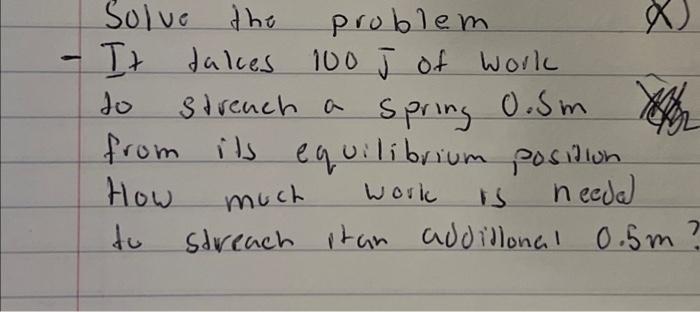 Solve the problem X)
- It takes 100 J of work
to streach a spring 0.5m
from its equilibrium position
How much work is needed
to streach it an additional 0.5m?